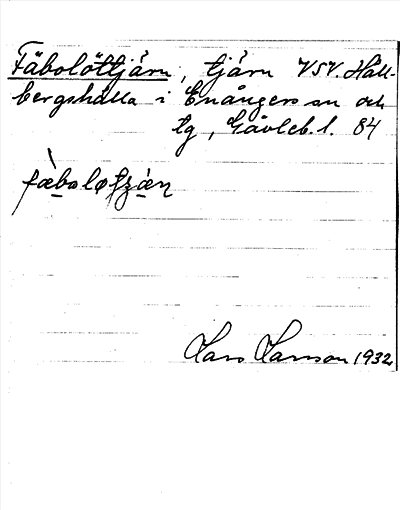 Fäbolöttjärn, tjärn VSV. Hall-
bergshälla i Enångers sn och
tg, Gävleb. l. 84
fæboløtʃæɳ
Lars Larsson 1932